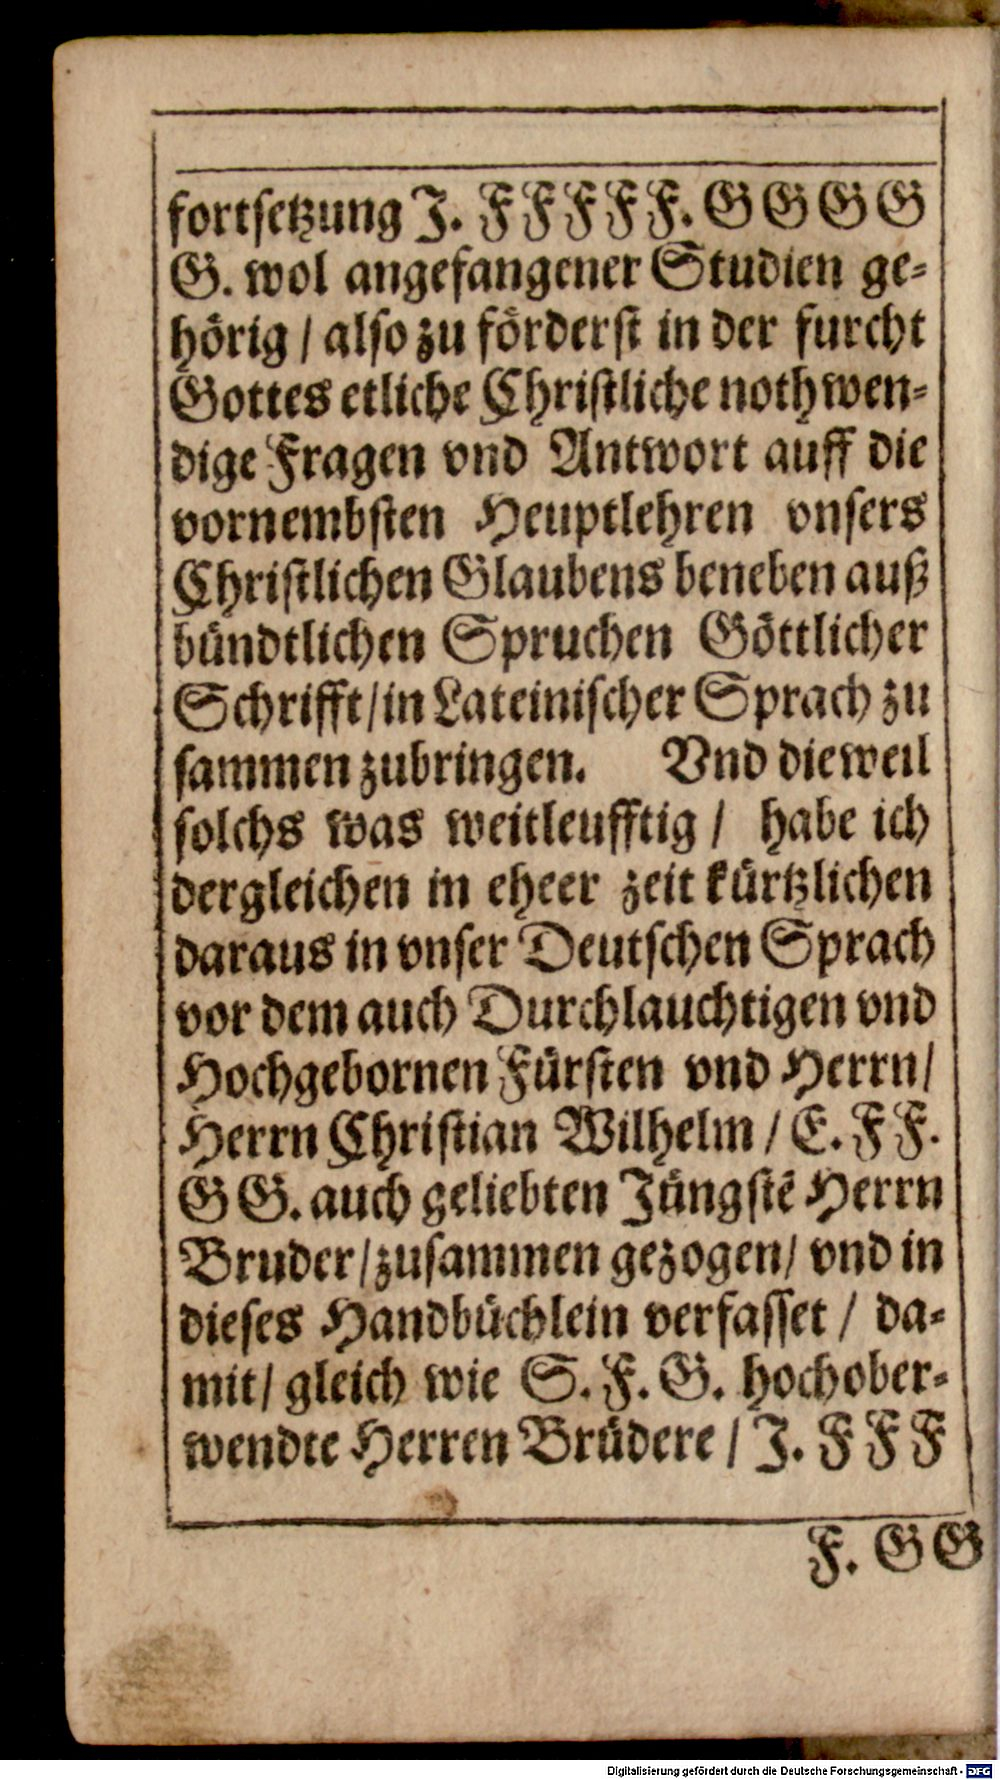 fortsetzung J. F F F F F. G G G G
G. wol angefangener Studien ge-
hörig / also zu förderst in der furcht
Gottes etliche Christliche nothwen-
dige Fragen vnd Antwort auff die
vornembsten Heuptlehren vnsers
Christlichen Glaubens beneben auß
bündtlichen Spruchen Göttlicher
Schrifft / in Lateinischer Sprach zu
sammen zubringen. Vnd dieweil
solchs was weitleufftig / habe ich
dergleichen in eheer zeit kürtzlichen
daraus in vnser Deutschen Sprach
vor dem auch Durchlauchtigen vnd
Hochgebornen Fürsten vnd Herrn /
Herrn Christian Wilhelm / E. F F.
G G. auch geliebten Jüngstē Herrn
Bruder / zusammen gezogen / vnd in
dieses Handbüchlein verfasset / da-
mit / gleich wie S. F. G. hochober-
wendte Herren Brüdere / J. F F F
F. G G
Digitalisierung gefördert durch die Deutsche Forschungsgemeinschaft - DFG